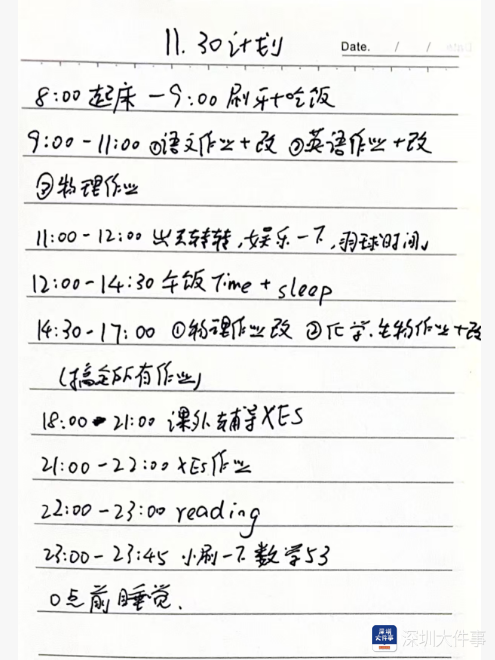 11.30计划
Date. / /
8:00起床—9:00刷牙+吃饭
9:00-11:00 ①语文作业+改 ②英语作业+改
③物理作业
11:00-12:00 出去转转,娱乐一下,羽球时间
12:00-14:30 午饭Time + sleep
14:30-17:00 ①物理作业改 ②化学.生物作业+改
(搞定所有作业)
18:00-21:00 课外辅导XES
21:00-22:00 XES作业
22:00-23:00 reading
23:00-23:45 小刷一下数学53
0点前睡觉.
深圳大件事 深圳大件事